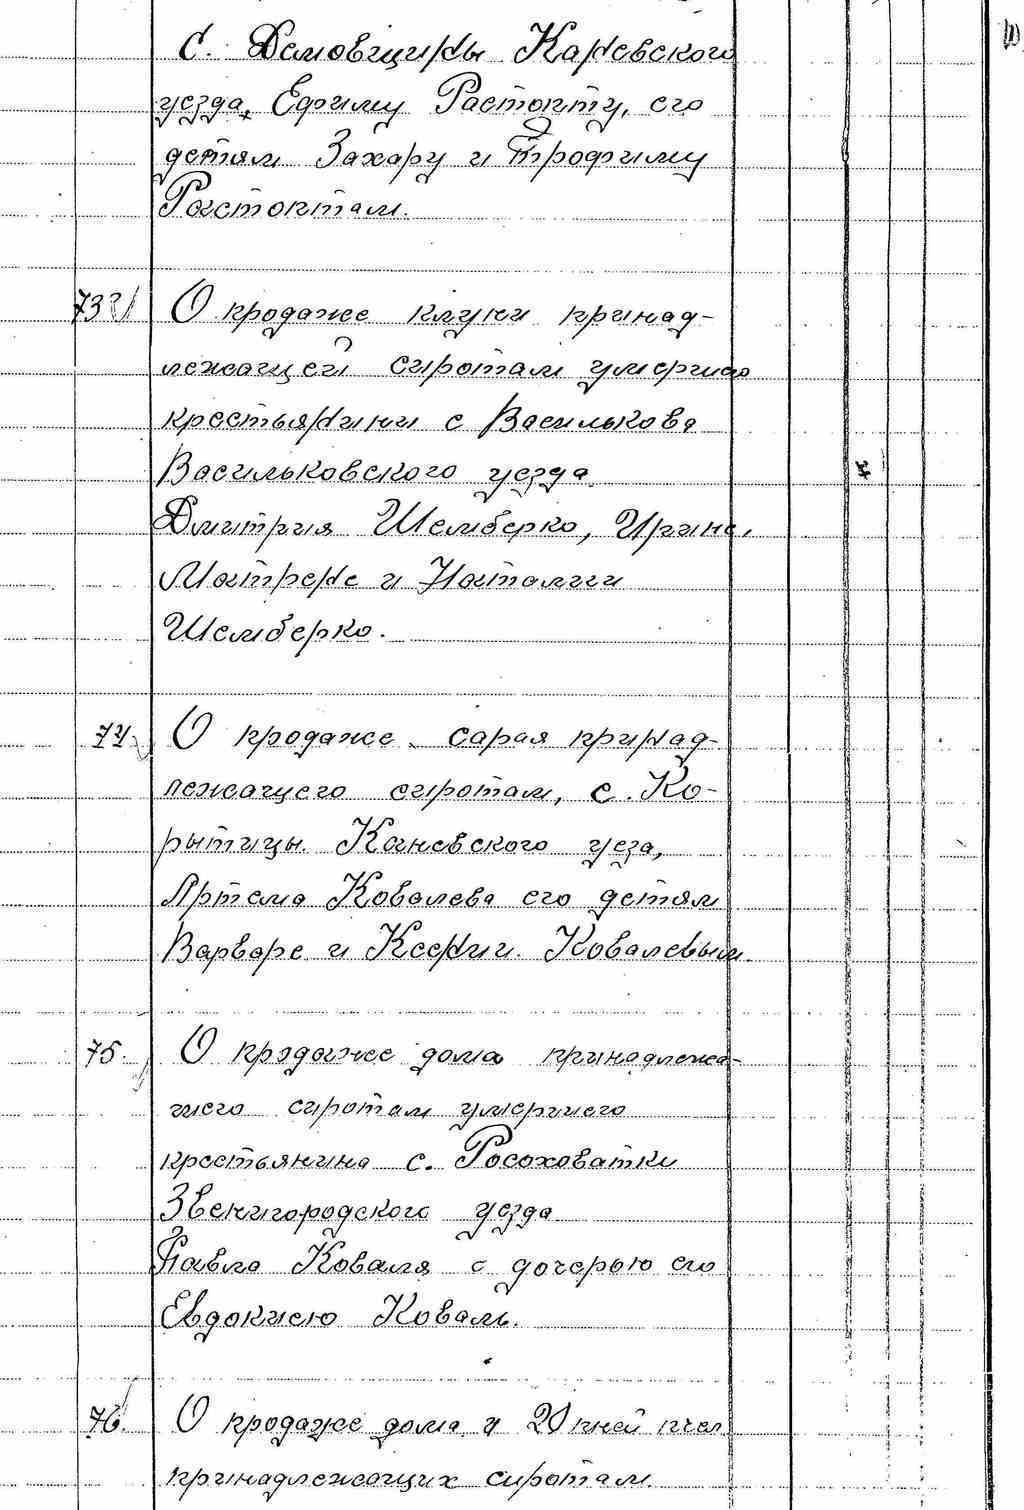 с. Демовщины Каневского
уезда, Ефиму Растопту, его
детям Захару и Трофиму
Растоптам.
73 О продаже клуни принад-
лежащей сиротам умершго
крестьянини с Василькова
Васильковского уезда
Дмитрия Шемберко, Ирине,
Матрене и Наталии
Шемберко.
74 О продаже сарая принад-
лежащего сиротам, с. Ко-
рытицы Каневского уеза,
Артема Ковалева его детям
Варваре и Ксении Ковалевым.
75. О продаже дома принадлежа-
щего сиротам умершего
крестьянина с. Росоховатки
Звенигородского уезда
Павла Коваля с дочерью его
Евдокиею Коваль.
76. О продаже дома и 20 пней пчел
принадлежащих сиротам.